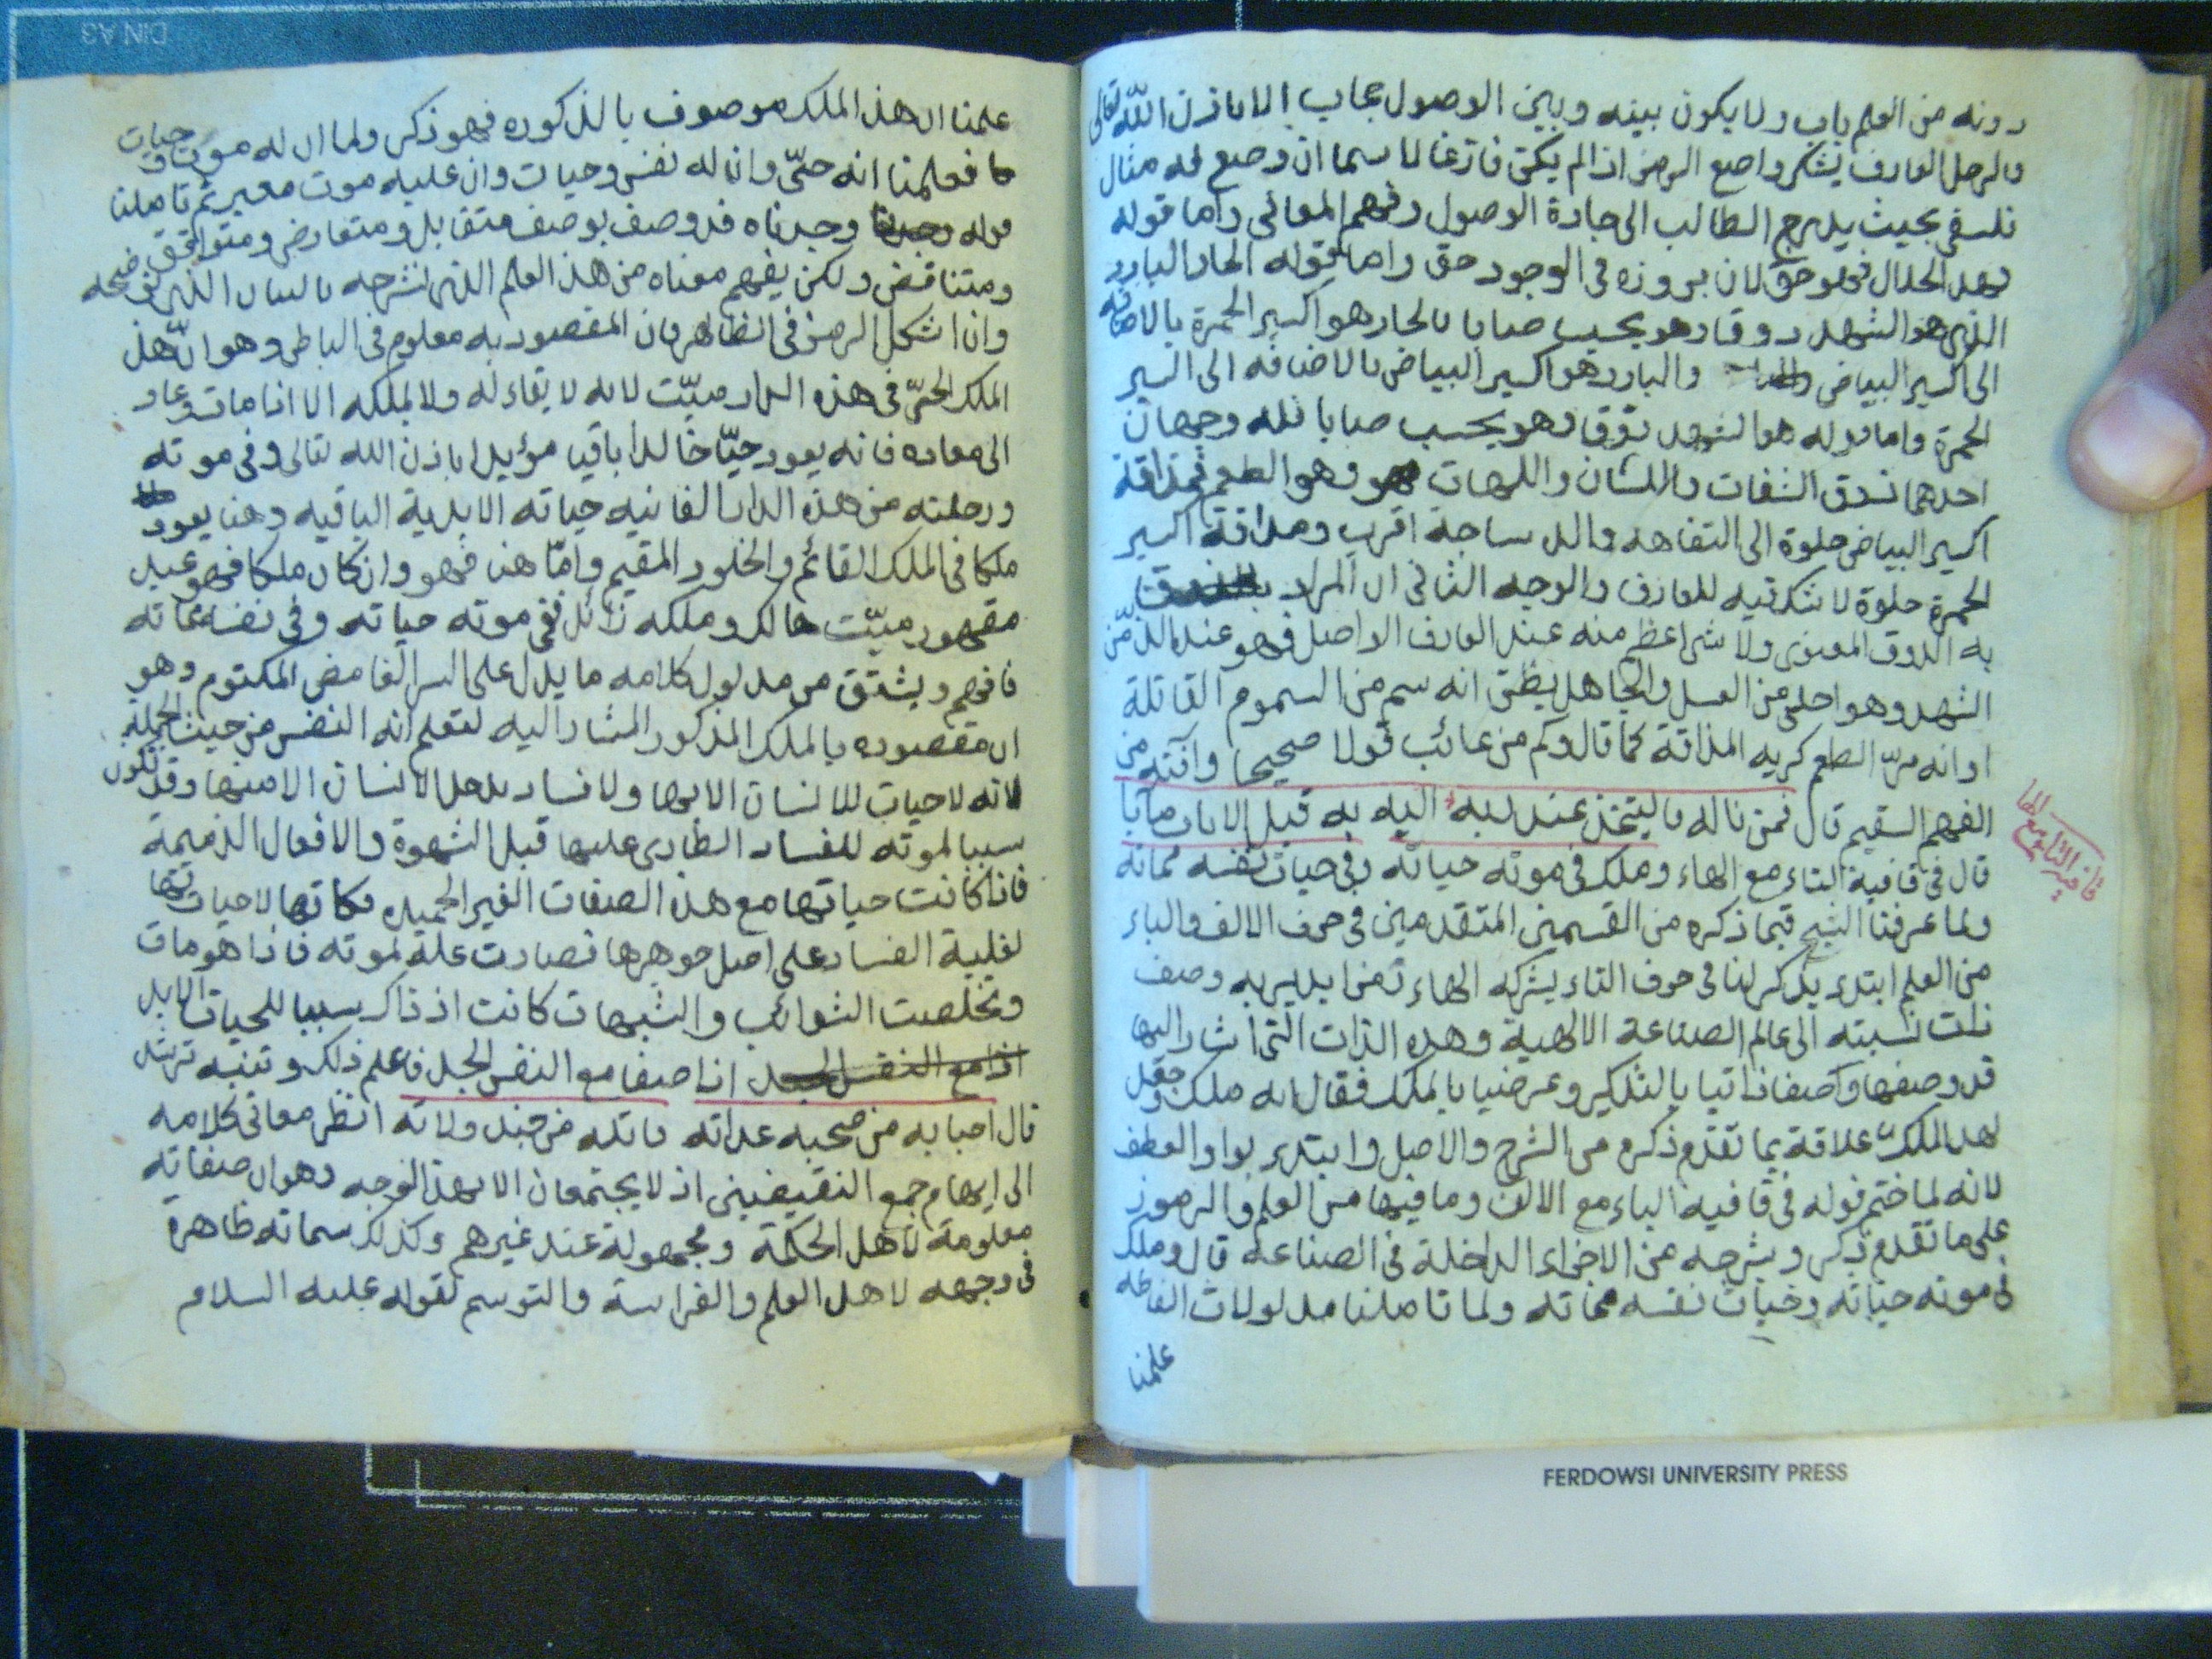 دونه من العلم باب ولا يكون بينه وبين الوصول حجاب الا باذن الله تعالى
والرجل العارف يشكر واضع الرمز اذا لم يكن فارغا لا سيما ان وضع له مثال
فلسفى بحيث يدرج الطالب الى جادة الوصول وفهم المعانى واما قوله
وهذا الحلال فهو حق لان بروزه فى الوجود حق واما قوله الحار البارد
الذى هو الشهد ذوقا وهو يحسب صابا فالحار هو اكسير الحمرة بالاضافة
الى اكسير البياض والبارد هو اكسير البياض بالاضافه الى اكسير
الحمرة واما قوله هو الشهد ذوقا وهو يحسب صابا فله وجهان
احدهما تذوق الشفات واللسان واللهات وهو الطعم فمذاقة
اكسير البياض حلوة الى التفاهه والدساجة اقرب ومذاقة اكسير
الحمرة حلوة لا شك فيه للعارف والوجه الثانى ان المراد
به الذوق المعنوى ولا شئ اعظم منه عند العارف الواصل فهو عنده الذ من
الشهد وهو احلى من العسل والجاهل يظن انه سم من السموم القاتلة
او انه مر الطعم كريه المذاقة كما قال وكم من عائب قولا صحيحا وآفته من
الفهم السقيم قال فمن ناله فاليتخذ عند ربه اليه به قبل الاياب مآبا
قافية التاء مع الها
قال فى قافية التاء مع الهاء وملك فى موته حياته وفى حيات نفسه مماته
ولما عرفنا الشيخ فيما ذكره من القسمين المتقدمين فى حرف الالف والباء
من العلم ابتدء يذكر لنا فى حرف التاء بشركة الهاء رمزا يدير به وصف
ذات نسبته الى عالم الصناعة الالهية وهذه الذات التى اشار اليها
قد وصفها وصفا ذاتيا بالتذكير وعرضيا بالملك فقال انه ملك وجعل
لهذا الملك علاقة بما تقدم ذكره من الشرح والاصل وابتدء بواو العطف
لانه لما ختم قوله فى قافيه الباء مع الالف وما فيها من العلم والرموز
على ما تقدم ذكره وشرحه من الاجزاء الداخلة فى الصناعة قال وملك
فى موته حياته وحيات نفسه مماته ولما تاملنا مدلولات الفاظه
علمنا
علمنا ان هذا الملك موصوف بالذكوره فهو ذكر ولما ان له موت وحيات
فعلمنا انه حى وان له نفس وحيات وان عليه موت معبر ثم تاملنا
قوله وجدناه قد وصف بوصف متقابل ومتعارض ومتوافق
ومتناقض ولكن يفهم معناه من هذا العلم الذى نشرحه بالبيان الذى نوضحه
وان اشكل الرمز فى الظاهر فان المقصود به معلوم فى الباطن وهو ان هذا
الملك الحى فى هذه الدار ميت لانه لا بقاء له ولا لملكه الا اذا مات وعاد
الى معاده فانه يعود حيا خالدا باقيا مؤبدا باذن الله تعالى وفى موته
ورحلته من هذه الدار الفانيه حياته الابدية الباقيه وهنا يعود
ملكا فى الملك القائم والخلود المقيم واما هنا فهو وان كان ملكا فهو عبد
مقهور ميت هالك وملكه زائل ففى موته حياته وفى نفسه مماته
فافهم ويشتق من مدلول كلامه ما يدل على السر الغامض المكتوم وهو
ان مقصوده بالملك المذكور المشار اليه لتعلم انه النفس من حيث الجملة
لانه لا حيات للانسان الا بها ولا فساد يدخل الانسان الا منها وقد تكون
سببا لموته للفساد الطارى عليها قبل الشهوة والافعال الذميمة
فاذا كانت حياتها مع هذه الصفات الغير الحميده فكانها لا حيات لها
لغلبة الفساد على اصل جوهرها فصارت علة لموته فاذا هو مات
وتخلصت الشوائب والشبهات كانت اذ ذاك سببا للحيات الابد
اذا صفا مع النفس الجسد فاعلم ذلك وتنبه ترشد
قال احبابه من صحبه عداته قاتله من جند ولاته انظر معانى كلامه
الى ايهام جمع النقيضين اذ لا يجتمعان الا بهذا الوجه وهو ان صفاته
معلومة لاهل الحكمة ومجهولة عند غيرهم وكذلك سماته ظاهرة
فى وجهه لاهل العلم والفراسة والتوسم لقوله عليه السلام
FERDOWSI UNIVERSITY PRESS
DIN A3